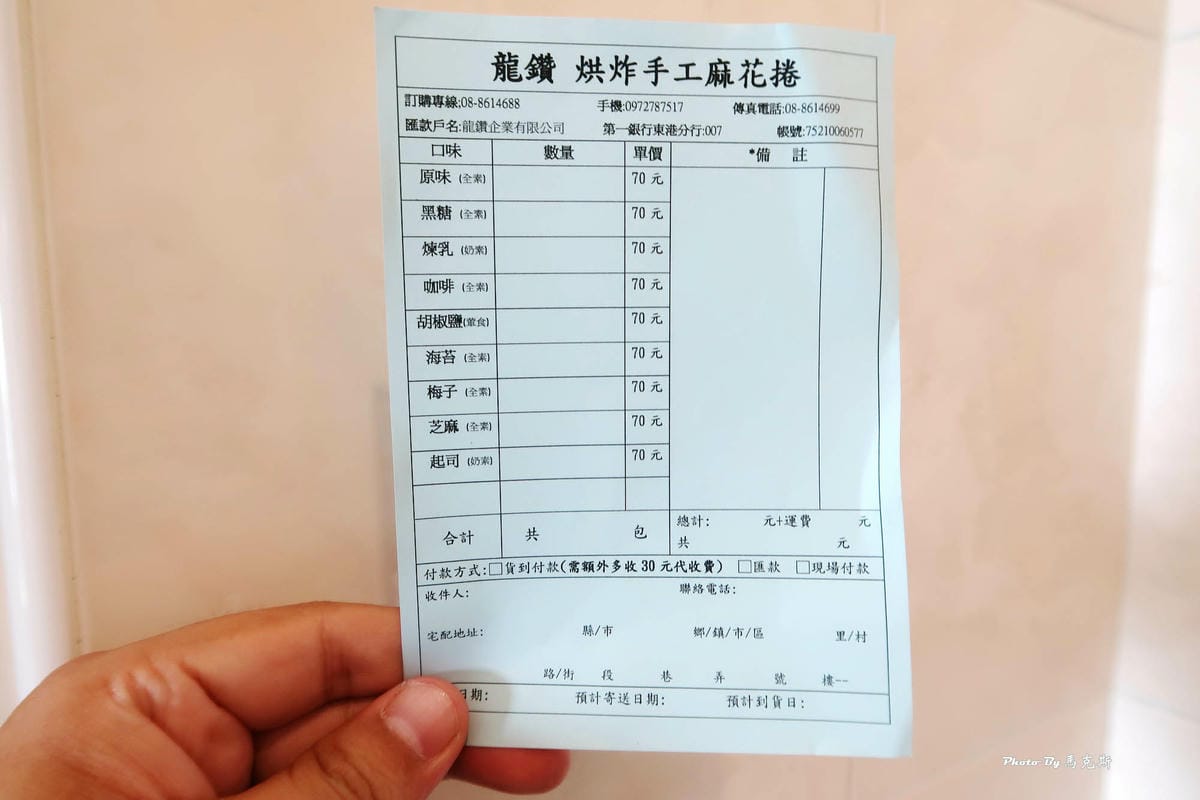 龍鑽 烘炸手工麻花捲
訂購專線:08-8614688 手機:0972787517 傳真電話:08-8614699
匯款戶名:龍鑽企業有限公司 第一銀行東港分行:007 帳號:75210060577
口味 數量 單價 *備 註
原味 (全素) 70 元
黑糖 (全素) 70 元
煉乳 (奶素) 70 元
咖啡 (全素) 70 元
胡椒鹽(葷食) 70 元
海苔 (全素) 70 元
梅子 (全素) 70 元
芝麻 (全素) 70 元
起司 (奶素) 70 元
合計 共 包 總計: 元+運費 元
共 元
付款方式:□貨到付款(需額外多收 30 元代收費) □匯款 □現場付款
收件人: 聯絡電話:
宅配地址: 縣/市 鄉/鎮/市/區 里/村
路/街 段 巷 弄 號 樓--
日期: 預計寄送日期: 預計到貨日:
Photo By 馬克斯